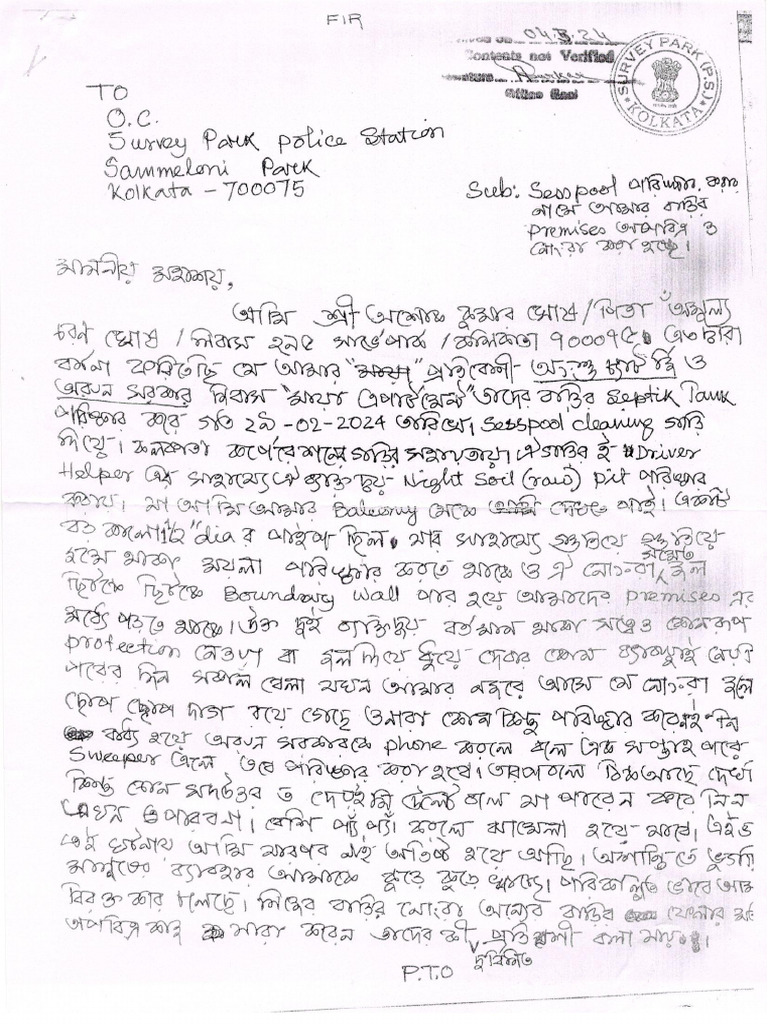 FIR
04.5.24
Contents not Verified
Office Seal
SURVEY PARK (P.S.)
KOLKATA
TO
O.C.
Survey Park Police Station
Sammeloni Park
Kolkata - 700075
Sub: Sesspool পরিষ্কার করার
নামে আমার বাড়ির
premises অপবিত্র ও
নোংরা করা হচ্ছে।
মাননীয় মহাশয়,
আমি শ্রী অশোক কুমার ঘোষ / পিতা অমূল্য
চরণ ঘোষ / নিবাস সার্ভেপার্ক / কলিকাতা ৭০০০৭৫। এতদ্বারা
বর্ণনা করিতেছি যে আমার প্রতিবেশী ও
অরুন সরকার নিবাস "মায়া এপার্টমেন্ট" তাদের বাড়ির Septik Tank
পরিষ্কার করে গত ২৯-02-2024 তারিখে। Sesspool cleaning গাড়ি
দিয়ে। কলকাতা কর্পোরেশনের গাড়ির সহায়তায়। ঐ গাড়ির ই Driver
Helper এর সাহায্যে ঐ ব্যক্তি দ্বয় Night Soil (raw) pit পরিষ্কার
করায়। যা আমি আমার Balcony থেকে দেখতে পাই। একটা
বড় কালো "dia র পাইপ ছিল। যার সাহায্যে
ময়লা পরিষ্কার করতে থাকে ও ঐ নোংরা জল সমেত
ছিটকে ছিটকে Boundary Wall পার হয়ে আমাদের premises এর
মধ্যে পড়তে থাকে। উক্ত দুই ব্যক্তিদ্বয় বর্তমান থাকা সত্ত্বেও কোনরূপ
protection নেওয়া বা জল দিয়ে ধুয়ে দেবার কোন ব্যবস্থাই নেয়নি
পরের দিন সকাল বেলা যখন আমার নজরে আসে যে নোংরা জলে
ছোপ ছোপ দাগ রয়ে গেছে ওনারা কোন কিছু পরিষ্কার করেনি
বাধ্য হয়ে অরুন সরকারকে phone করলে বলে এক সপ্তাহ পরে
Sweeper এলে তবে পরিষ্কার করা হবে। তারপরে বলে ঠিক আছে দেখছি
কিন্তু কোন সদউত্তর ত দেয়ই নি বলে যা পারেন করে নিন
এখন ও পারবনা। বেশি প্যাঁ প্যাঁ করলে ঝামেলা হয়ে যাবে।
এই ঘটনায় আমি যারপর নাই অতিষ্ঠ হয়ে আছি। অশান্তিতে ভুগছি
মানুষের ব্যবহার আমাকে কুড়ে কুড়ে খাচ্ছে। পরিকল্পিত ভাবে
বিরক্ত করে চলেছে। নিজের বাড়ির নোংরা অন্যের বাড়ির ফেলার মত
অপবিত্র কাজ যারা করেন তাদের কী প্রতিবেশী বলা যায়।
P.T.O